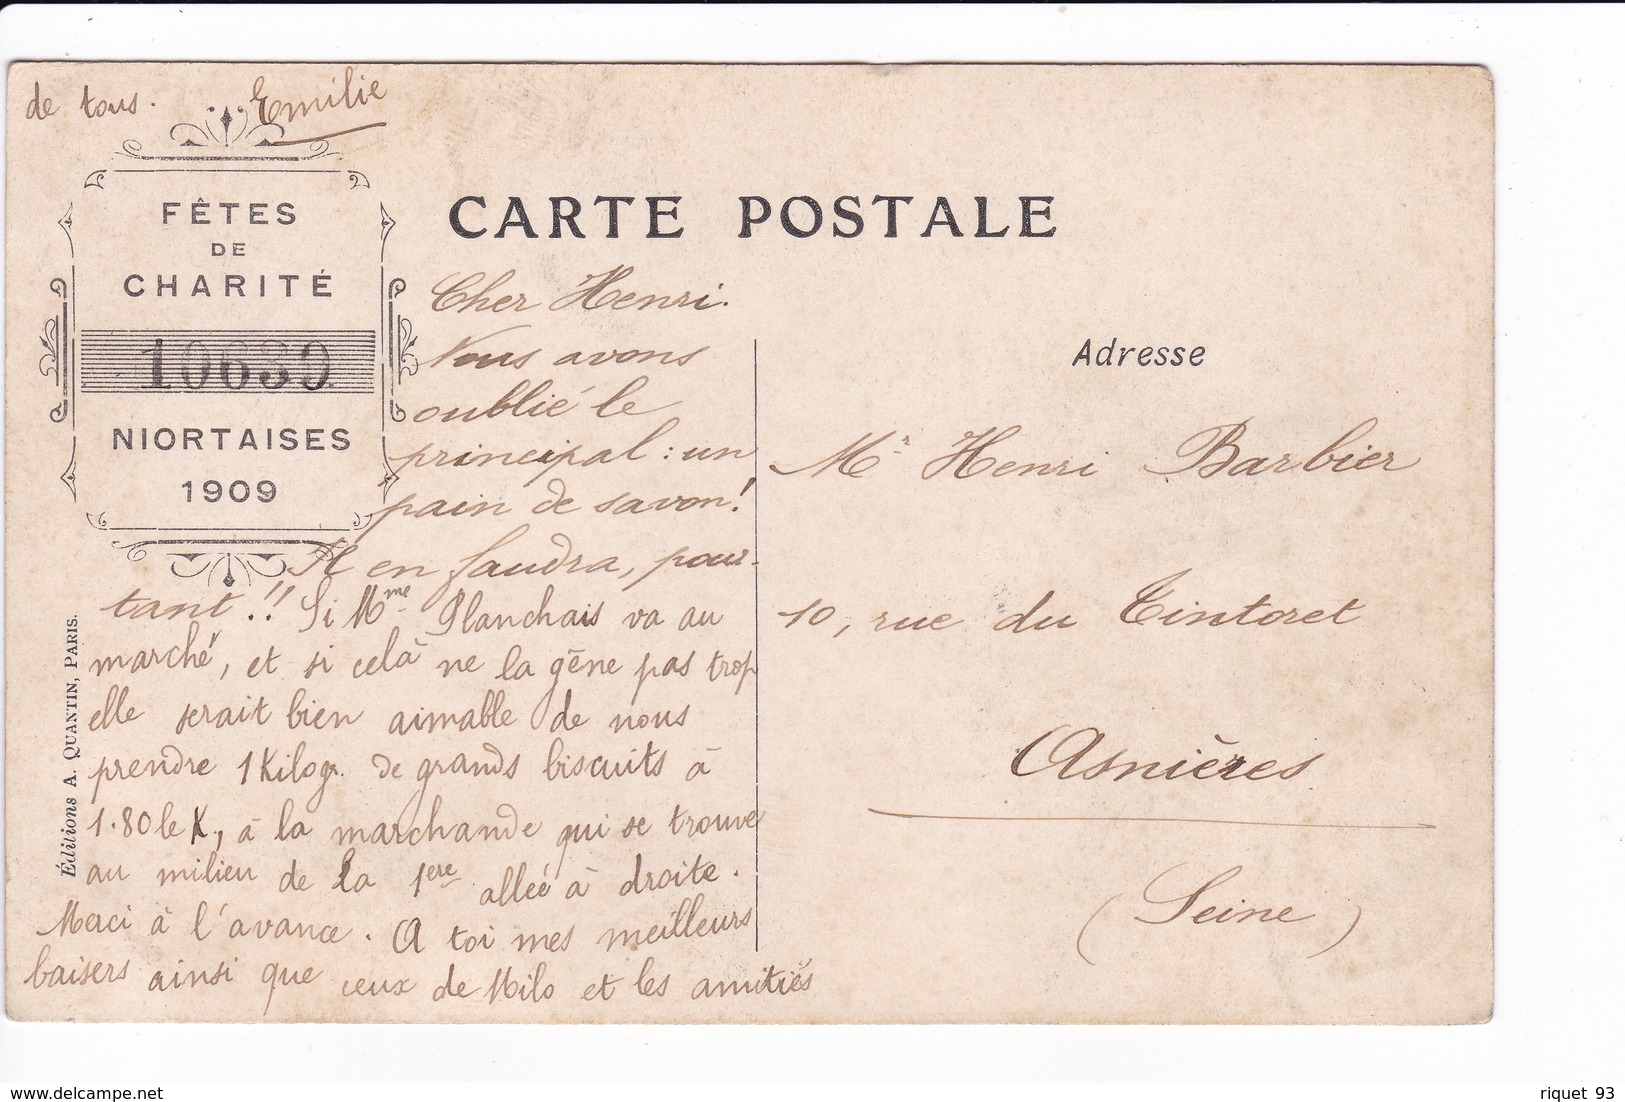 de tous. Emilie
FÊTES
DE
CHARITÉ
10639
NIORTAISES
1909
Éditions A. QUANTIN, PARIS.
CARTE POSTALE
Cher Henri.
Nous avons
oublié le
principal : un
pain de savon !
Il en faudra, pour-
tant !! Si Mme Planchais va au
marché, et si celà ne la gêne pas trop
elle serait bien aimable de nous
prendre 1 Kilogr. de grands biscuits à
1.80 le K., à la marchande qui se trouve
au milieu de la 1ère alleé à droite.
Merci à l'avance. A toi mes meilleurs
baisers ainsi que ceux de Milo et les amitiés
Adresse
Mr Henri Barbier
10, rue du Tintoret
Asnières
(Seine)
riquet 93
https://www.delcampe.net